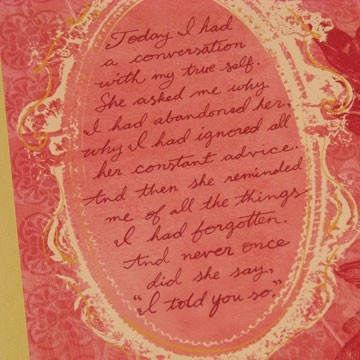 Today I had
a conversation
with my true self.
She asked me why
I had abandoned her.
why I had ignored all
her constant advice.
And then she reminded
me of all the things
I had forgotten.
And never once
did she say,
"I told you so."